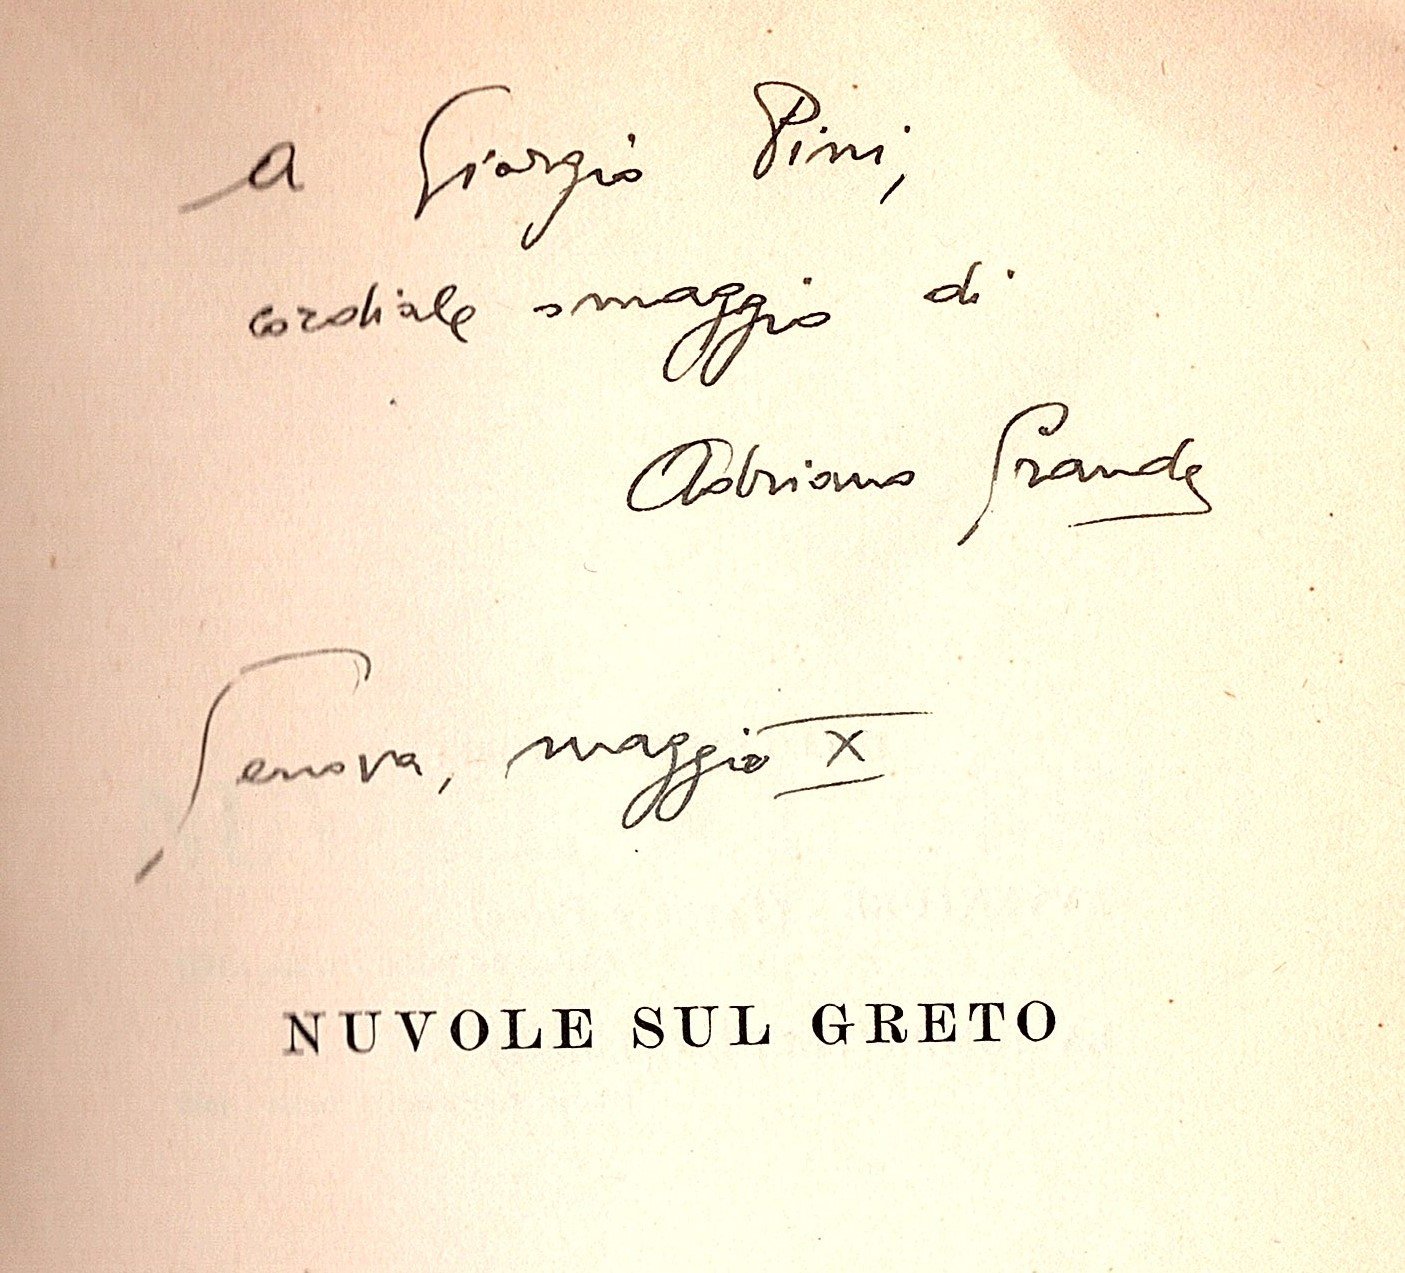 a Giorgio Pini,
cordiale omaggio di
Adriano Grande
Genova, maggio X
NUVOLE SUL GRETO